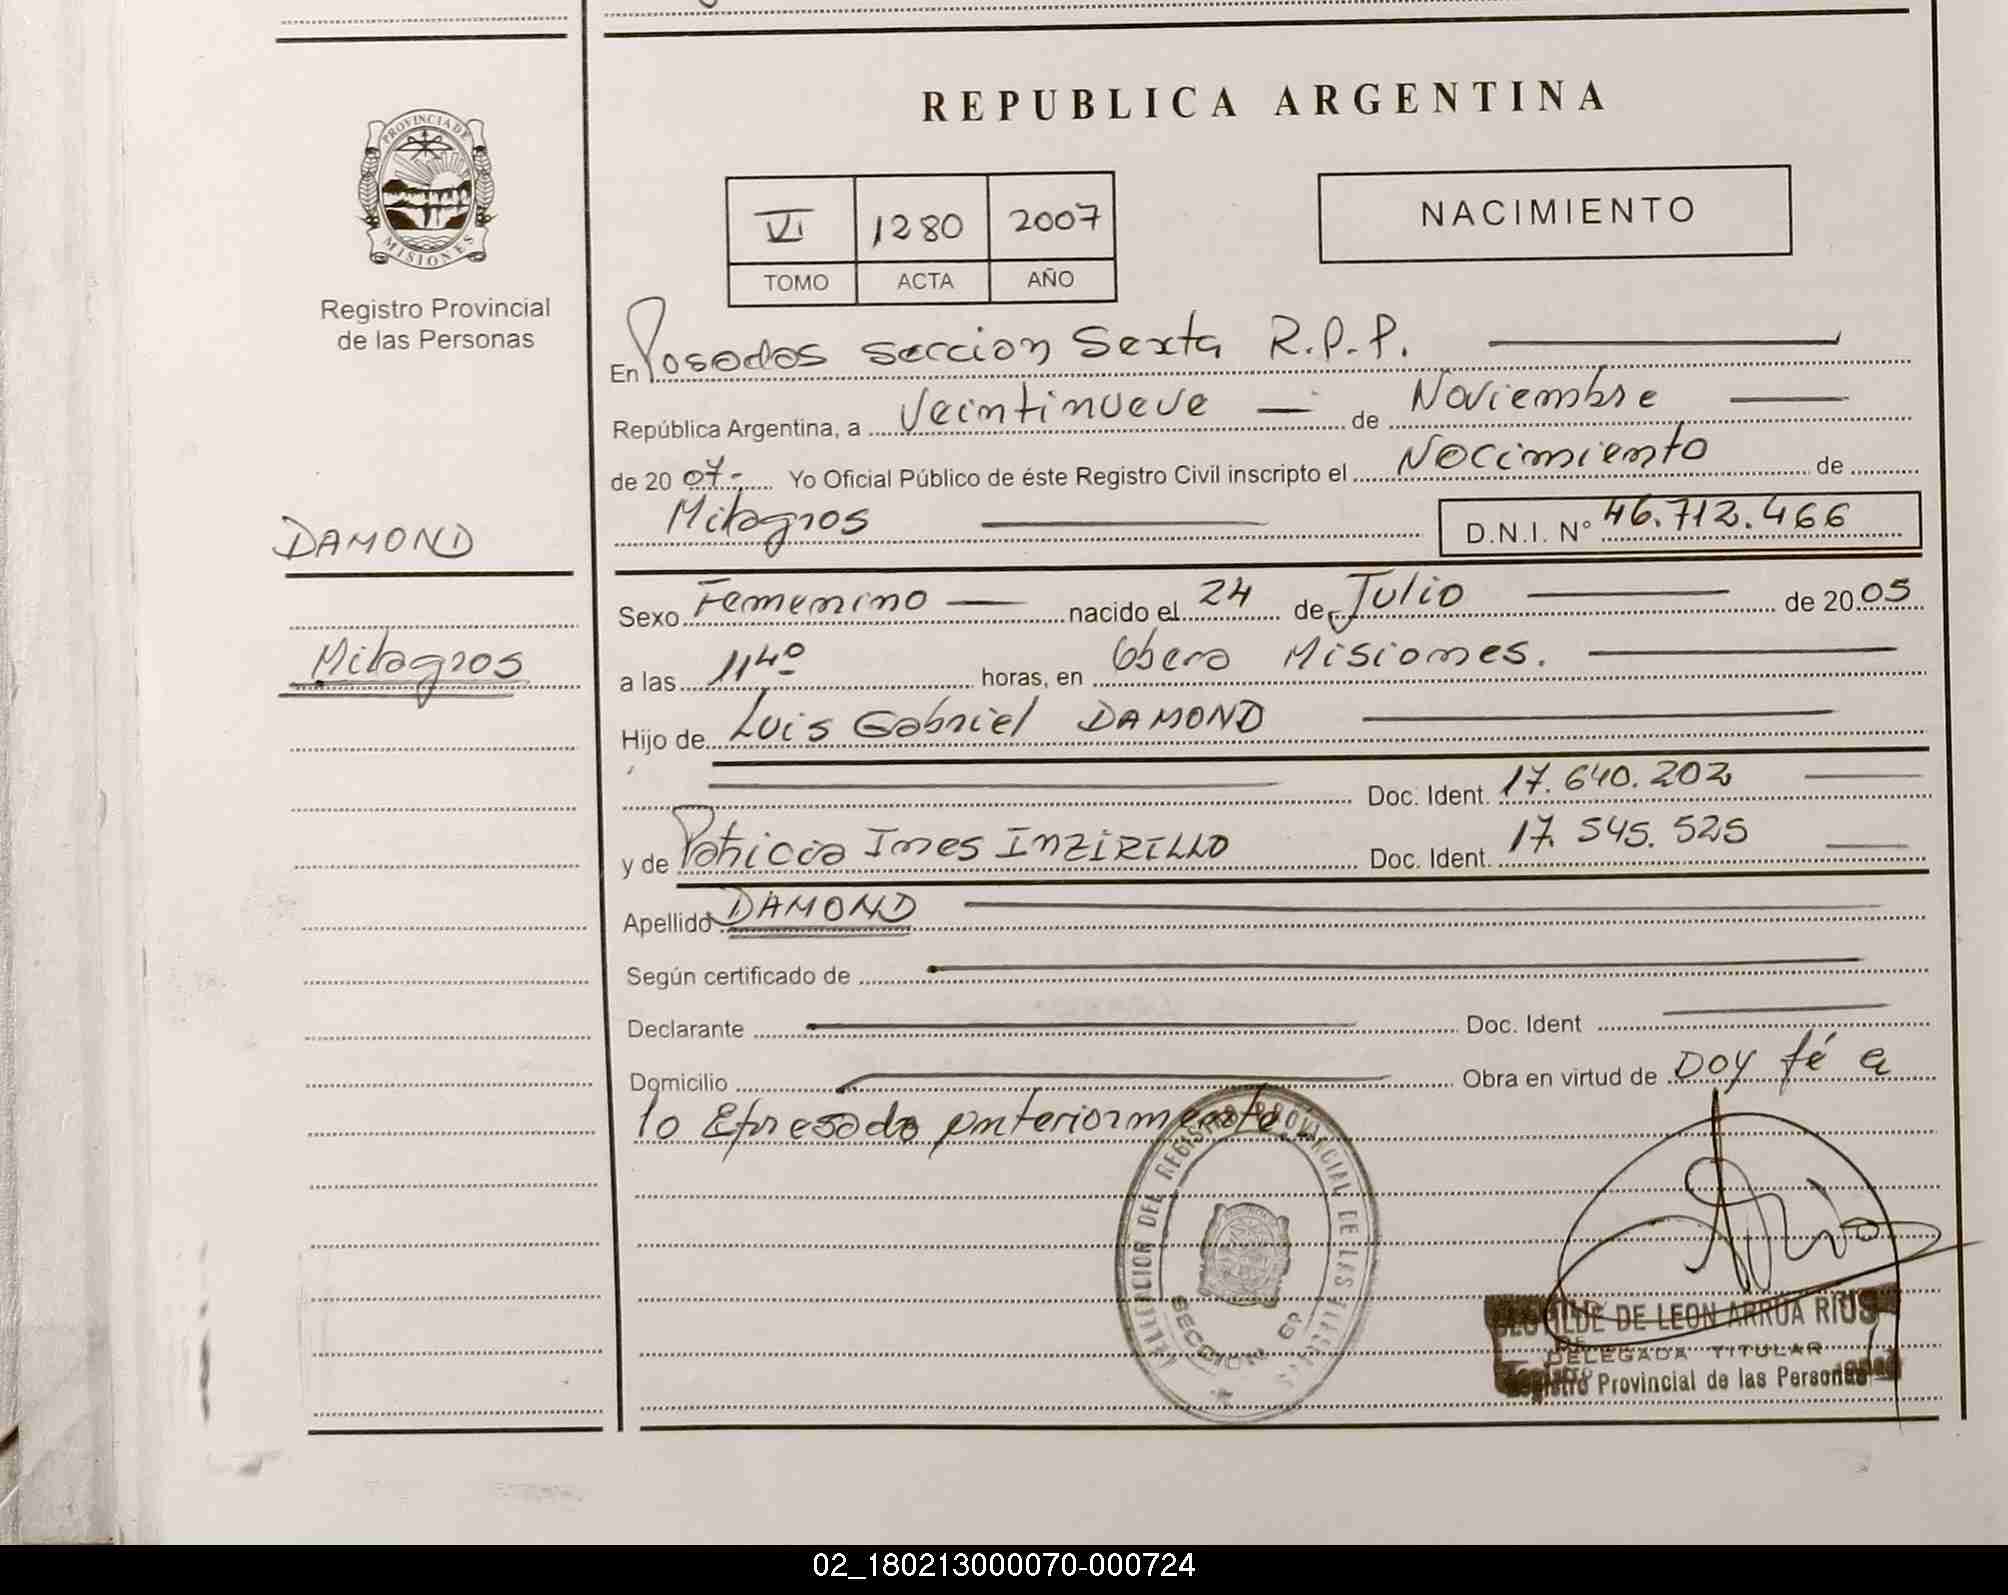 REPUBLICA ARGENTINA
PROVINCIA DE
MISIONES
Registro Provincial
de las Personas
VI 1280 2007
TOMO ACTA AÑO
NACIMIENTO
En Posadas seccion Sexta R.P.P.
República Argentina, a Veintinueve de Noviembre
de 20 07- Yo Oficial Público de éste Registro Civil inscripto el Nacimiento de
Milagros D.N.I. N° 46.712.466
DAMOND
Milagros
Sexo Femenino nacido el 24 de Julio de 20 05
a las 11 40 horas, en Obera Misiones.
Hijo de Luis Gabriel DAMOND
Doc. Ident. 17.640.202
y de Patricia Ines INZIRILLO Doc. Ident. 17.545.525
Apellido DAMOND
Según certificado de
Declarante Doc. Ident
Domicilio Obra en virtud de DOY fé a
lo Efpresado anteriormente.
DELEGACION DEL REGISTRO PROVINCIAL DE LAS PERSONAS
SECCION 6ª
DE LEON ARRUA RIUS
DELEGADA TITULAR
Registro Provincial de las Personas
02_180213000070-000724